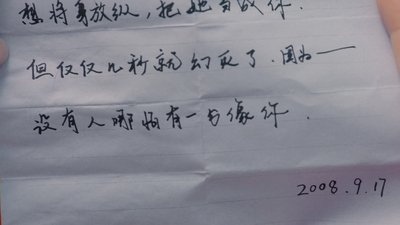 想将身放纵，把她当成你.
但仅仅几秒就幻灭了.因为——
没有人哪怕有一占像你.
2008.9.17